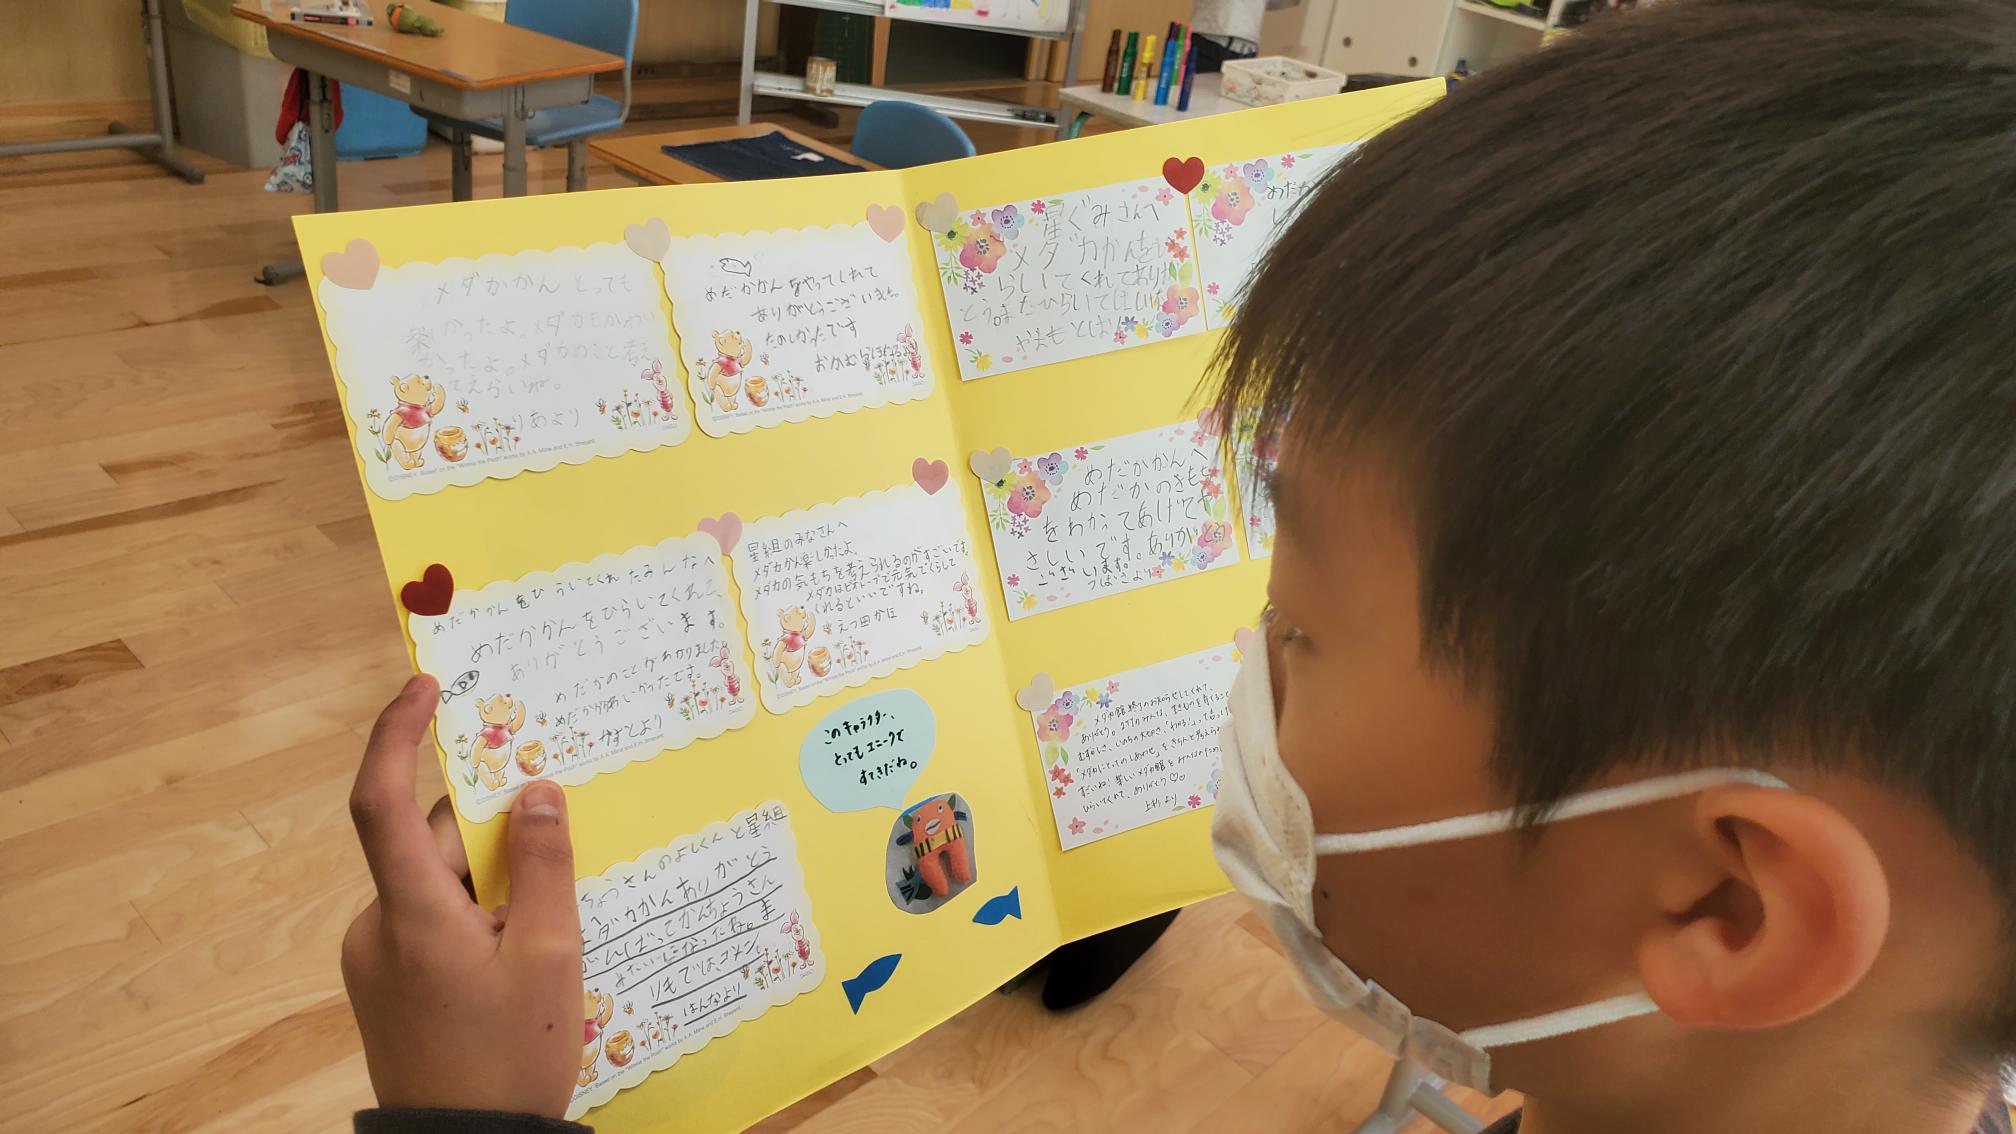 メダかかん とっても
楽しかったよ。メダカもかわい
かったよ。メダカのこと考え
てえらいね。
りあより
めだかかんをやってくれて
ありがとうございます。
たのしかったです
おかむら
めだかかんをひらいてくれたみんなへ
めだかかんをひらいてくれて、
ありがとうございます。
めだかのことがわかりました。
めだかがかわいかったです。
かずとより
星組のみなさんへ
メダカかん楽しかったよ。
メダカの気もちを考えられるのがすごいです。
メダカはビオトープで元気でくらして
くれるといいですね。
えつ田かほ
ちょうさんのよしくんと星組
メダカかんありがとう
がんばってかんちょうさん
みたいになったね。ま
はんなより
このキャラクター、
とってもユニークで
すてきだね。
星ぐみさんへ
メダカかんをひ
らいてくれてありが
とう。またひらいてほしいな
やまもと
めだかかんへ
めだかのきもち
をわかってあげてや
さしいです。ありがとう
ございます。
つばさより
メダカ館終了のお知らせしてくれて、
ありがとう。
むずかしさ、いのちの大切さ、「わかる!」って
「メダカにとってのしあわせ」をきちんと考えられ
すごいね!楽しいメダカ館をみんなのため
ひらいてくれて、ありがとう♡♡
上杉より
©DISNEY. Based on the "Winnie the Pooh" works by A.A. Milne and E.H. Shepard.